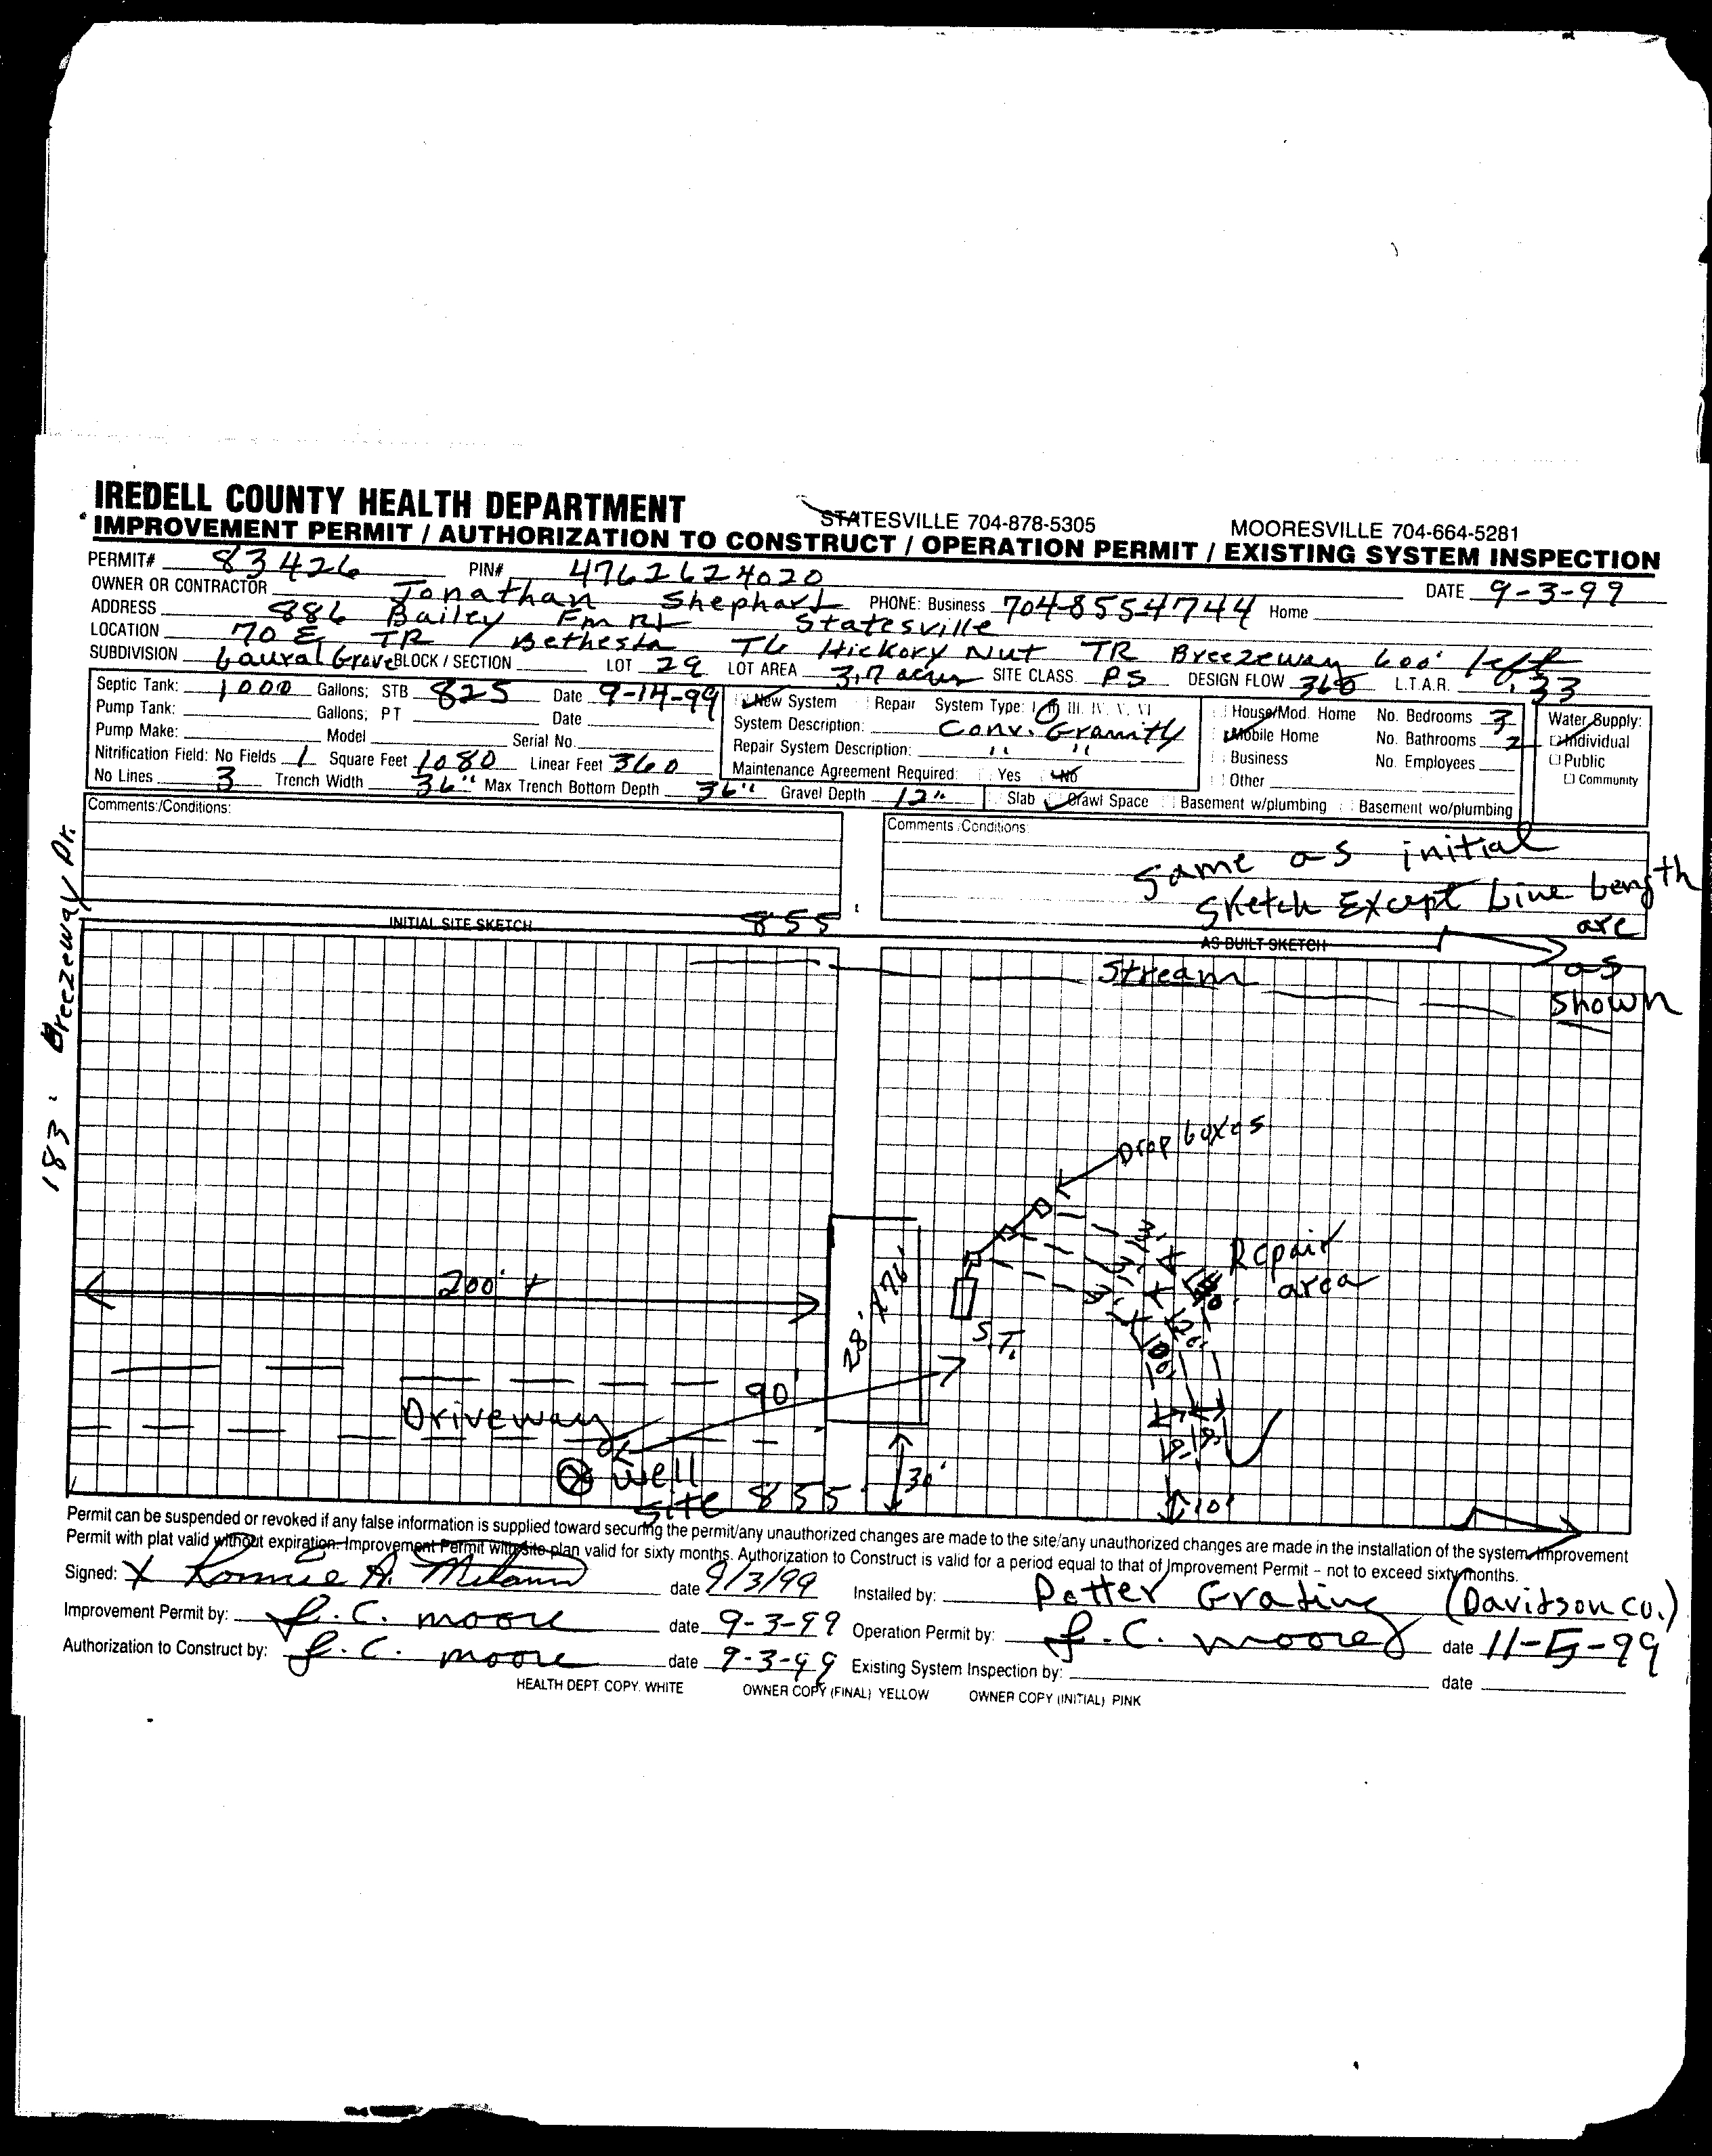 IREDELL COUNTY HEALTH DEPARTMENT STATESVILLE 704-878-5305 MOORESVILLE 704-664-5281
IMPROVEMENT PERMIT / AUTHORIZATION TO CONSTRUCT / OPERATION PERMIT / EXISTING SYSTEM INSPECTION
PERMIT# 83426 PIN# 4762624020 DATE 9-3-99
OWNER OR CONTRACTOR Jonathan Shephard PHONE: Business 704-8554744 Home
ADDRESS 886 Bailey Fm Rd Statesville
LOCATION 70 E TR Bethesda TL Hickory Nut TR Breezeway 600' left
SUBDIVISION Laural Grove BLOCK / SECTION LOT 29 LOT AREA 3.7 acres SITE CLASS. PS DESIGN FLOW 360 L.T.A.R. .33
Septic Tank: 1000 Gallons; STB 825 Date 9-14-99 New System Repair System Type: I II III. IV. V. VI House/Mod. Home No. Bedrooms 3 Water Supply:
Pump Tank: Gallons; PT Date System Description: Conv. Gravity Mobile Home No. Bathrooms 2 Individual
Pump Make: Model Serial No. Repair System Description: " " Business No. Employees Public
Nitrification Field: No Fields 1 Square Feet 1080 Linear Feet 360 Maintenance Agreement Required: Yes No Other Community
No Lines 3 Trench Width 36" Max Trench Bottom Depth 36" Gravel Depth 12" Slab Crawl Space Basement w/plumbing Basement wo/plumbing
Comments:/Conditions:
Comments:/Conditions:
Same as initial
Sketch Except Line Length
are
as
shown
183' Breezeway Dr.
INITIAL SITE SKETCH 855'
AS BUILT SKETCH
Stream
Drop boxes
Repair
area
200' +
28' x 76'
S.T.
90'
Driveway
Well
site 855'
30'
10'
Permit can be suspended or revoked if any false information is supplied toward securing the permit/any unauthorized changes are made to the site/any unauthorized changes are made in the installation of the system. Improvement
Permit with plat valid without expiration. Improvement Permit with site plan valid for sixty months. Authorization to Construct is valid for a period equal to that of Improvement Permit – not to exceed sixty months.
Signed: X Ronnie A. date 9/3/99 Installed by: Potter Grading (Davidson Co.)
Improvement Permit by: J.C. Moore date 9-3-99 Operation Permit by: J.C. Moore date 11-5-99
Authorization to Construct by: J.C. Moore date 9-3-99 Existing System Inspection by: date
HEALTH DEPT. COPY. WHITE OWNER COPY (FINAL) YELLOW OWNER COPY (INITIAL) PINK